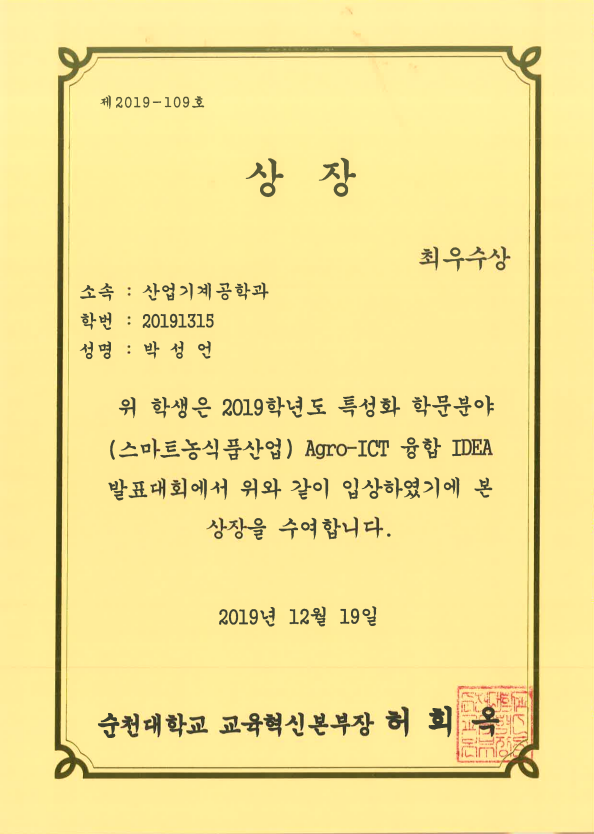 제2019-109호
상 장
최우수상
소속 : 산업기계공학과
학번 : 20191315
성명 : 박 성 언
위 학생은 2019학년도 특성화 학문분야
(스마트농식품산업) Agro-ICT 융합 IDEA
발표대회에서 위와 같이 입상하였기에 본
상장을 수여합니다.
2019년 12월 19일
순천대학교 교육혁신본부장 허 희 옥